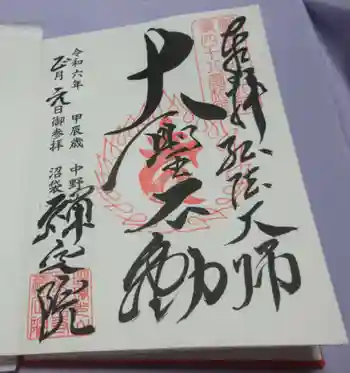 奉拝 弘法大師
大聖不動
令和六年 甲辰歳 中野
正月元日御参拝 沼袋
禅定院